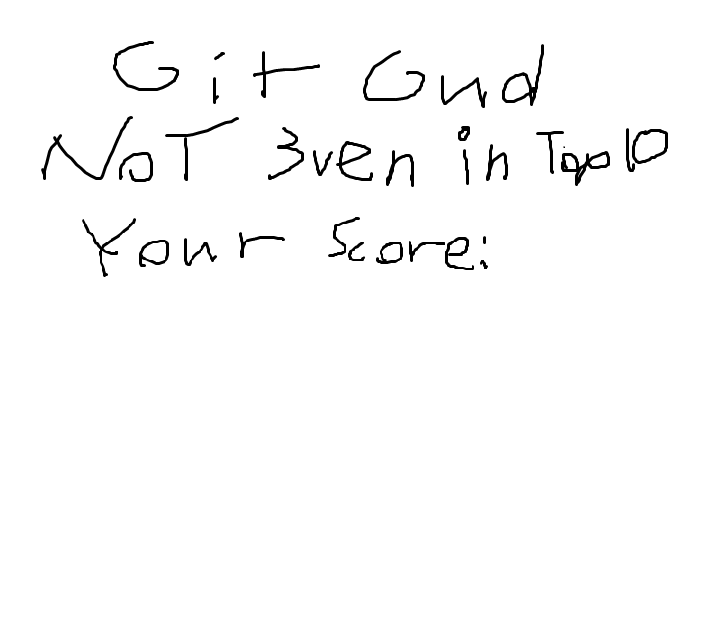 Git Gud
NoT 3ven in Top10
Your Score: